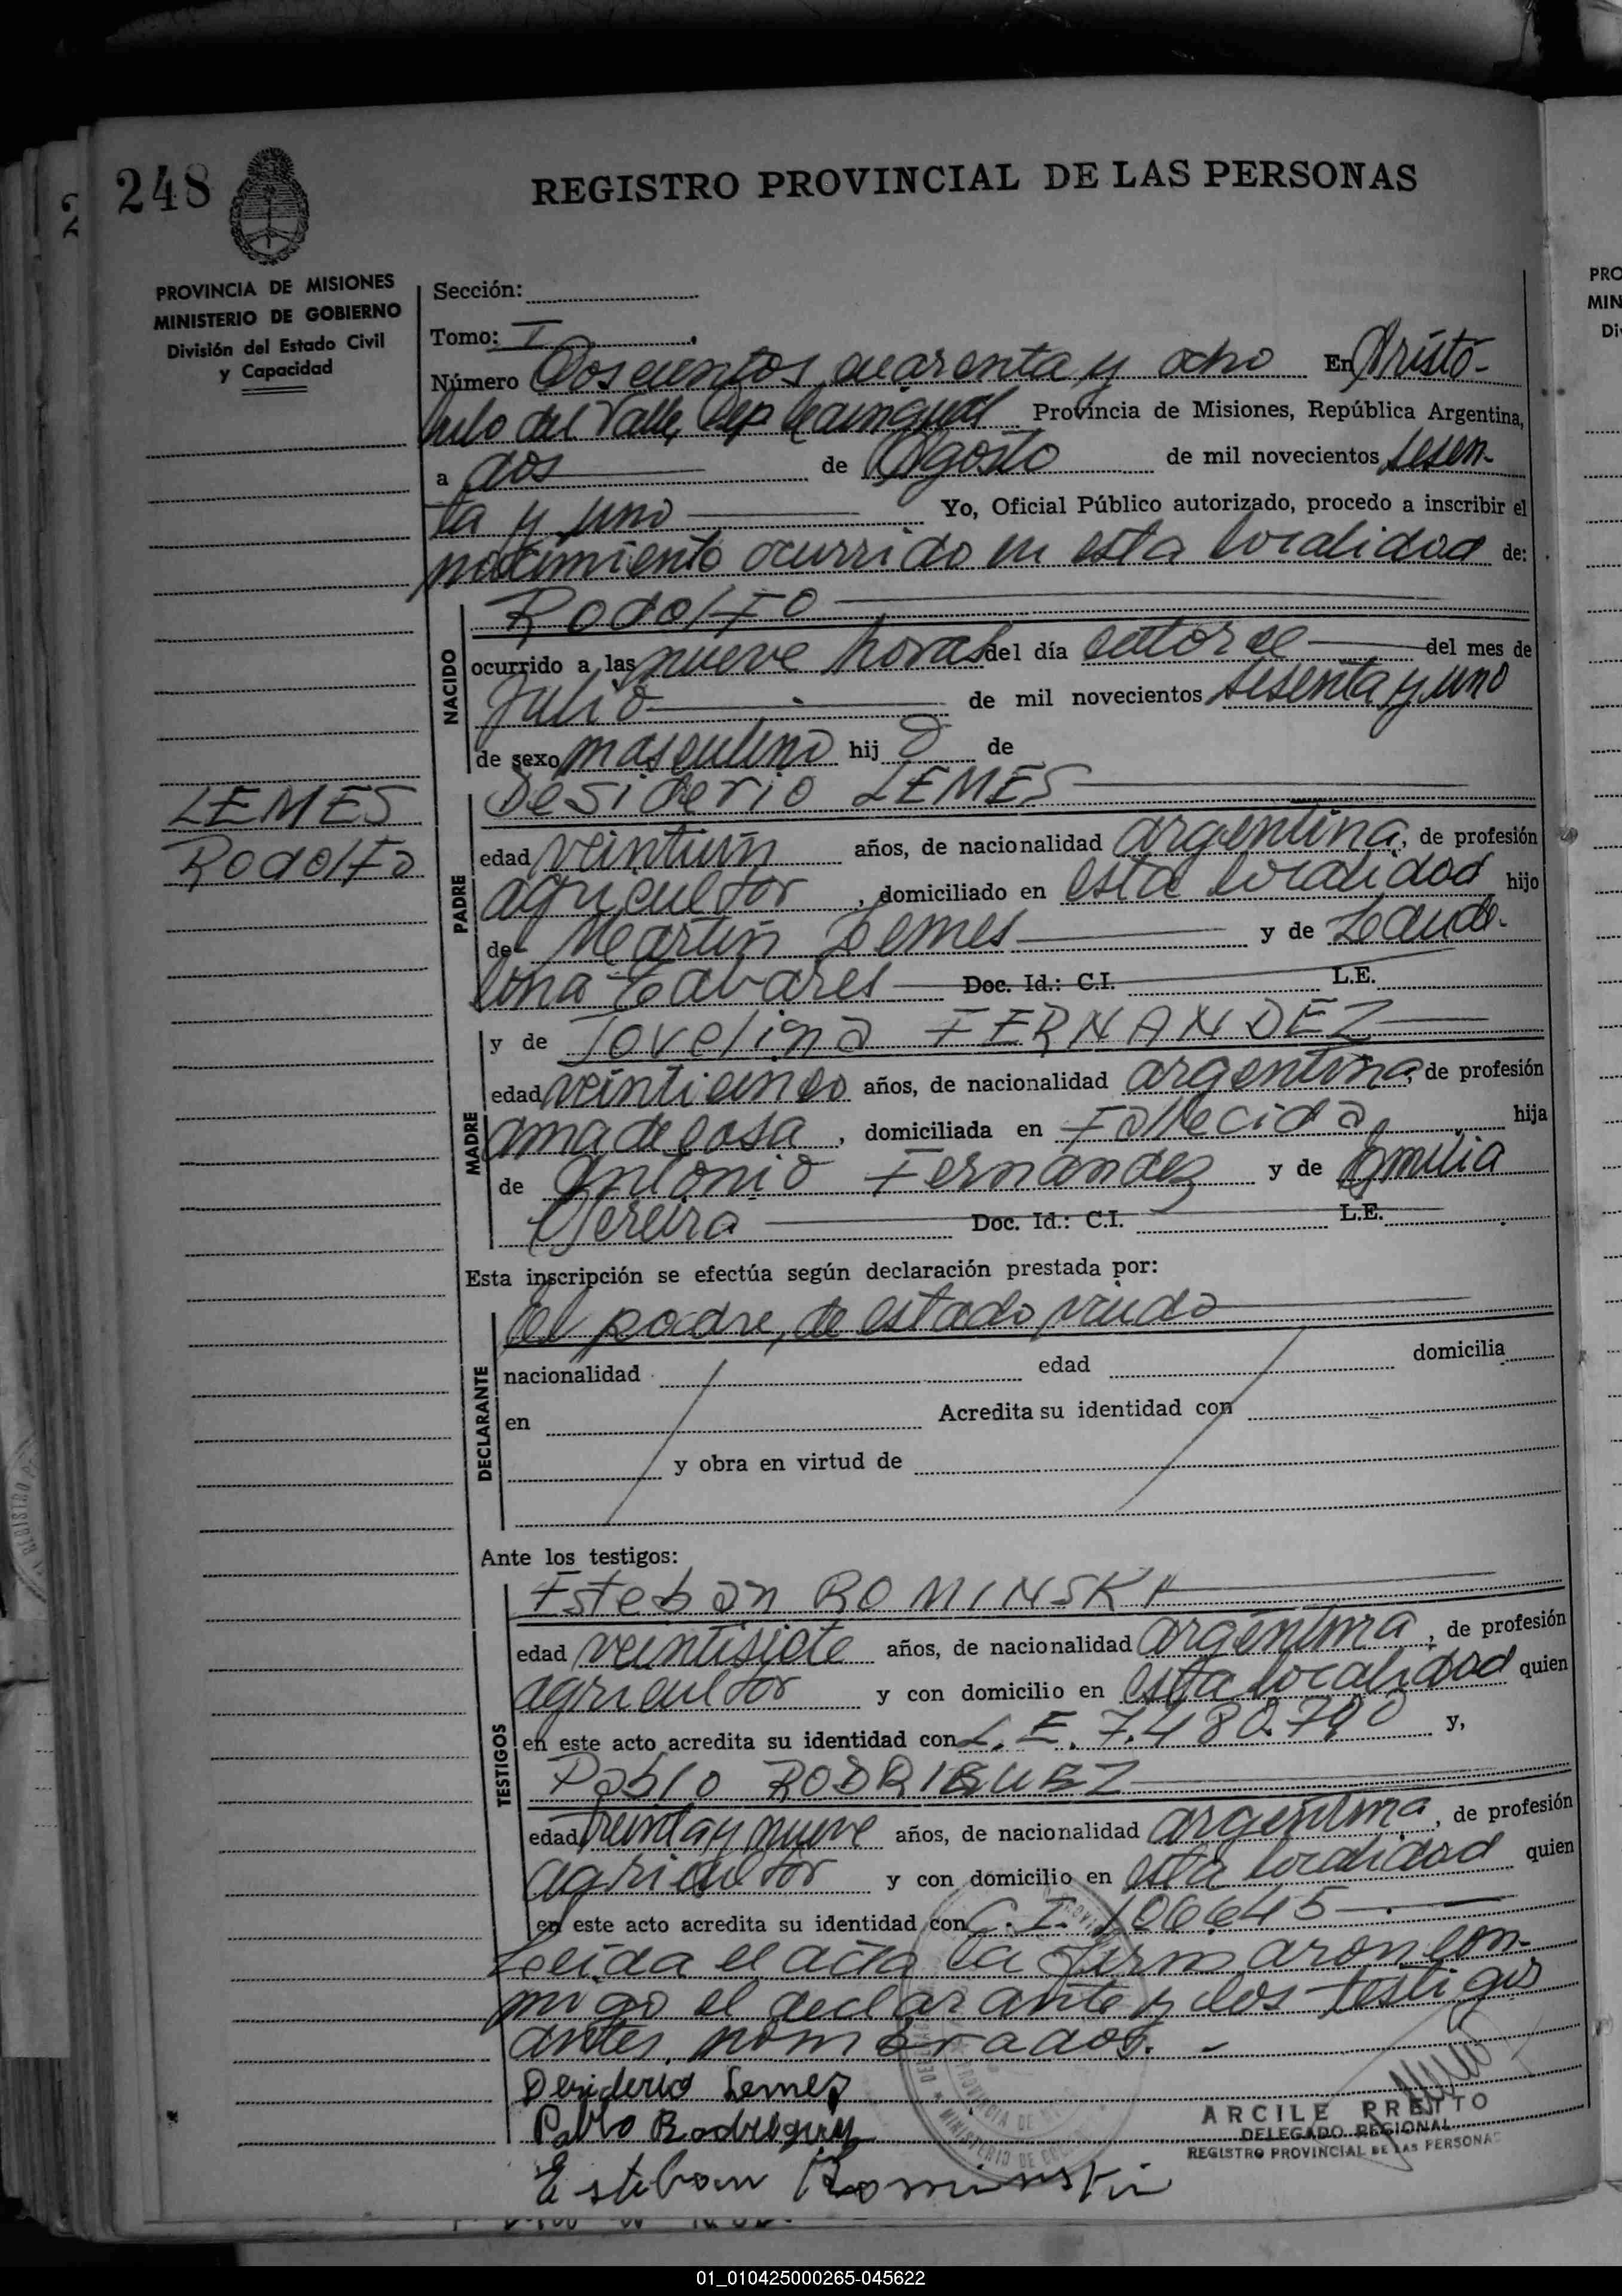 248
REGISTRO PROVINCIAL DE LAS PERSONAS
PROVINCIA DE MISIONES
MINISTERIO DE GOBIERNO
División del Estado Civil
y Capacidad
Sección:
Tomo: I
Número Doscientos cuarenta y ocho En Aristó-
bulo del Valle, Dep. Cainguás Provincia de Misiones, República Argentina,
a dos de Agosto de mil novecientos sesen-
ta y uno Yo, Oficial Público autorizado, procedo a inscribir el
nacimiento ocurrido en esta localidad de:
NACIDO
Rodolfo
ocurrido a las nueve horas del día catorce del mes de
Julio de mil novecientos sesenta y uno
de sexo masculino hij o de
LEMES
Rodolfo
PADRE
Desiderio LEMES
edad veintiún años, de nacionalidad argentina, de profesión
agricultor, domiciliado en esta localidad hijo
de Martín Lemes y de Laude-
lina Tavares Doc. Id.: C.I. L.E.
MADRE
y de Jovelina FERNANDEZ
edad veinticinco años, de nacionalidad argentina, de profesión
ama de casa, domiciliada en Fallecida, hija
de Antonio Fernández y de Emilia
Pereira Doc. Id.: C.I. L.E.
Esta inscripción se efectúa según declaración prestada por:
DECLARANTE
el padre, de estado viudo
nacionalidad edad domicilia
en Acredita su identidad con
y obra en virtud de
Ante los testigos:
TESTIGOS
Esteban ROMINSKI
edad veintisiete años, de nacionalidad argentina, de profesión
agricultor y con domicilio en esta localidad quien
en este acto acredita su identidad con L.E. 7.480.790 y,
Pablo RODRIGUEZ
edad treinta y nueve años, de nacionalidad argentina, de profesión
agricultor y con domicilio en esta localidad quien
en este acto acredita su identidad con C.I. 106645
Leída el acta la firmaron con-
migo el declarante y los testigos
antes nombrados.-
Desiderio Lemes
Pablo Rodriguez
Esteban Rominski
ARCILE PRETTO
DELEGADO REGIONAL
REGISTRO PROVINCIAL DE LAS PERSONAS
01_010425000265-045622